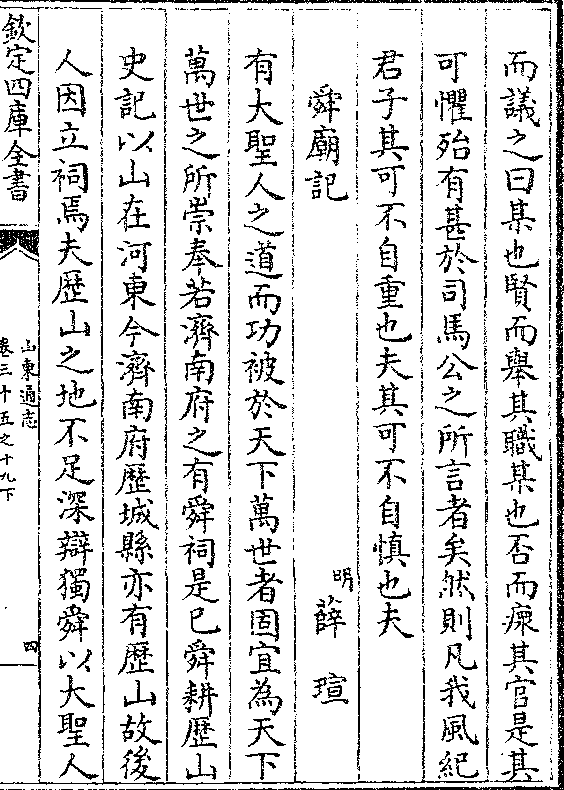 而議之曰某也賢而舉其職某也否而瘝其官是其
可懼殆有甚於司馬公之所言者矣然則凡我風紀
君子其可不自重也夫其可不自慎也夫
舜廟記
明
薛瑄
有大聖人之道而功被於天下萬世者固宜為天下
萬世之所崇奉若濟南府之有舜祠是已舜耕歴山
史記以山在河東今濟南府歴城縣亦有歴山故後
人因立祠焉夫歴山之地不足深辯獨舜以大聖人
欽定四庫全書
山東通志
卷三十五之十九下
四